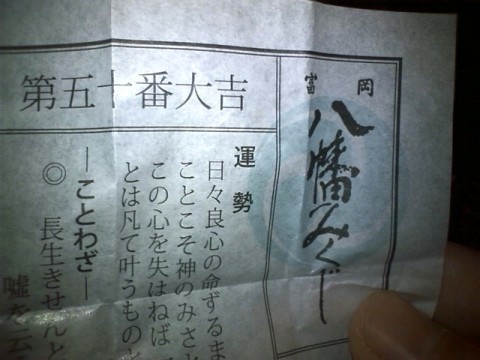 富岡
八幡みくじ
第五十番大吉
運勢
日々良心の命ずるま
ことこそ神のみさと
この心を失はねば
とは凡て叶うものと
―ことわざ―
◎ 長生きせんと
嘘を云